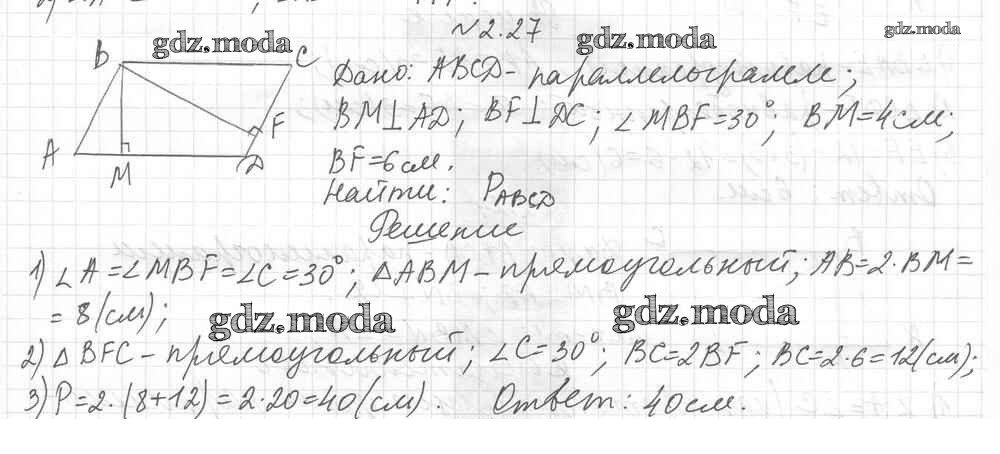 №2.27
gdz.moda
gdz.moda
gdz.moda
B
C
A
M
D
F
Дано: ABCD - параллелограмм;
BM⊥AD; BF⊥DC; ∠MBF=30°; BM=4см;
BF=6см.
Найти: P_ABCD
Решение
1) ∠A=∠MBF=∠C=30°; △ABM - прямоугольный; AB=2·BM=
=8(см);
gdz.moda
gdz.moda
2) △BFC - прямоугольный; ∠C=30°; BC=2BF; BC=2·6=12(см);
3) P=2·(8+12)=2·20=40(см). Ответ: 40см.